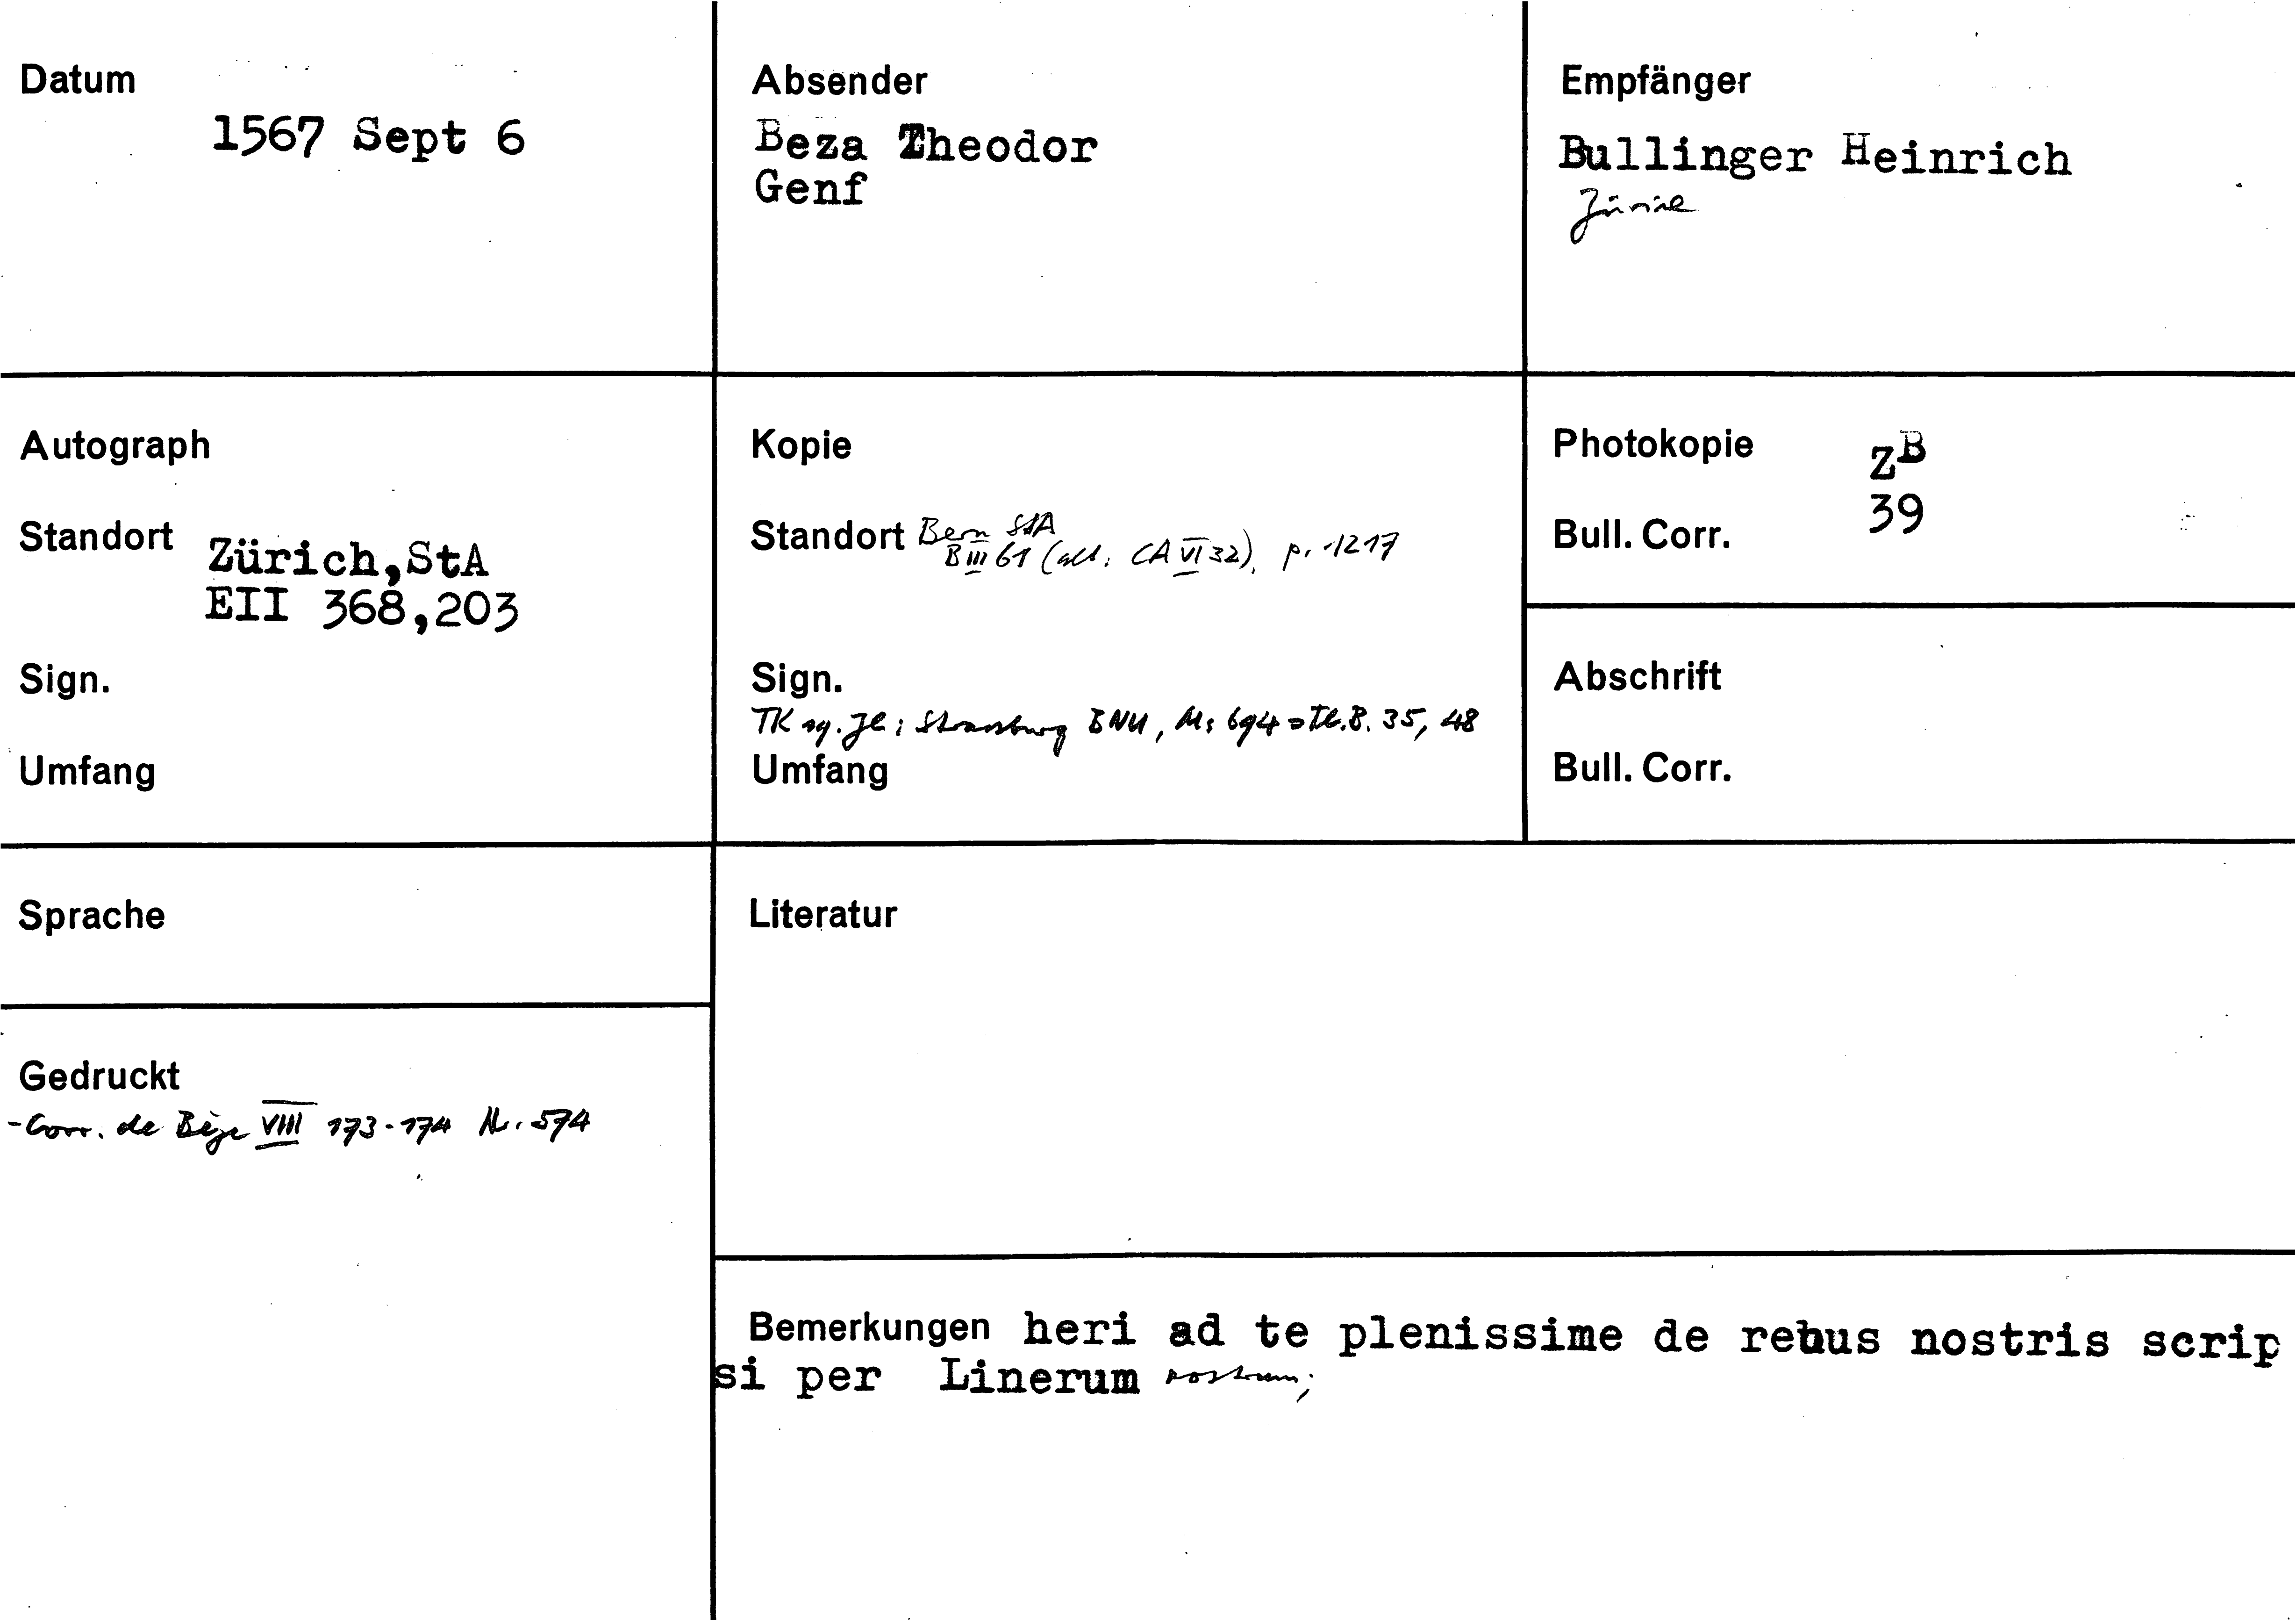 Datum
1567 Sept 6
Absender
Beza Theodor
Genf
Empfänger
Bullinger Heinrich
Zürich
Autograph
Standort Zürich,StA
EII 368,203
Sign.
Umfang
Kopie
Standort Bern StA
B III 61 (alt: CA VI 32), p. 1217
Sign.
TK sg. Jh: Strassburg BNU, Ms 694 = Th.B. 35, 48
Umfang
Photokopie ZB
Bull. Corr. 39
Abschrift
Bull. Corr.
Sprache
Literatur
Gedruckt
- Corr. de Bèze VIII 173-174 Nr. 574
Bemerkungen heri ad te plenissime de rebus nostris scrip
si per Linerum nostrum;